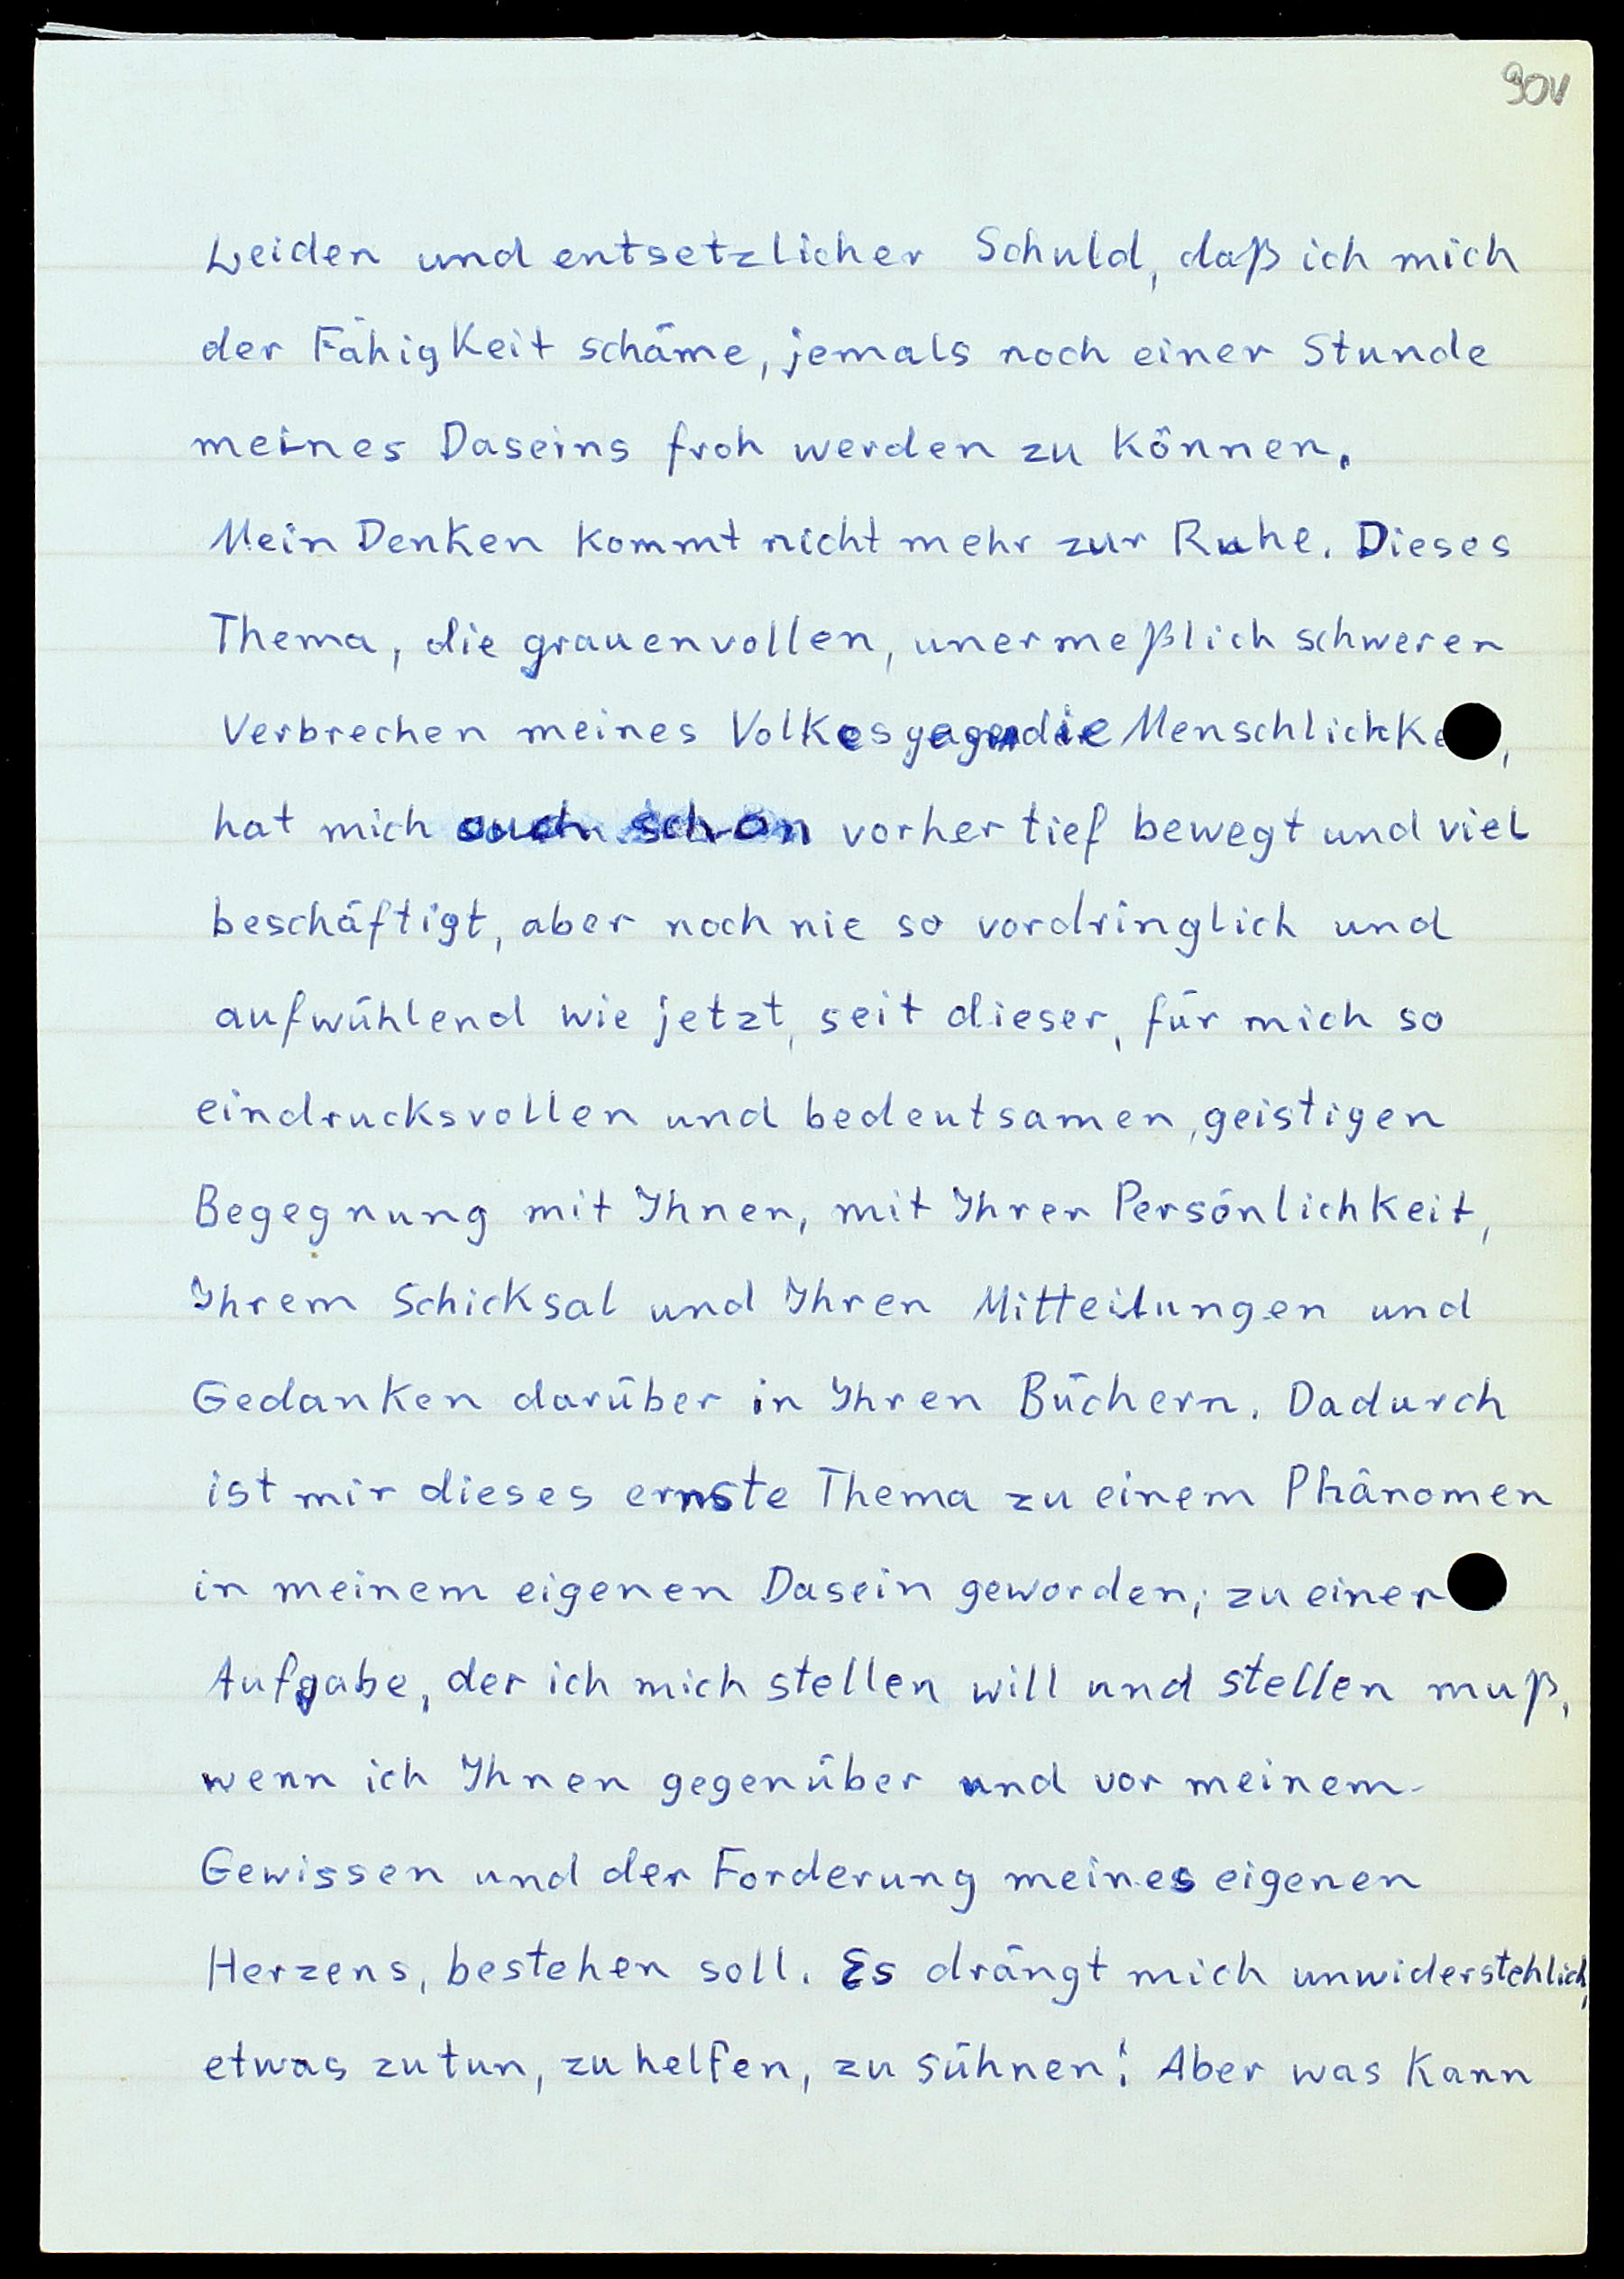 90v
Leiden und entsetzlicher Schuld, daß ich mich
der Fähigkeit schäme, jemals noch einer Stunde
meines Daseins froh werden zu können.
Mein Denken kommt nicht mehr zur Ruhe. Dieses
Thema, die grauenvollen, unermeßlich schweren
Verbrechen meines Volkes gegen die Menschlichke,
hat mich auch schon vorher tief bewegt und viel
beschäftigt, aber noch nie so vordringlich und
aufwühlend wie jetzt, seit dieser, für mich so
eindrucksvollen und bedeutsamen, geistigen
Begegnung mit Ihnen, mit Ihrer Persönlichkeit,
Ihrem Schicksal und Ihren Mitteilungen und
Gedanken darüber in Ihren Büchern. Dadurch
ist mir dieses ernste Thema zu einem Phänomen
in meinem eigenen Dasein geworden; zu einer
Aufgabe, der ich mich stellen will und stellen muß,
wenn ich Ihnen gegenüber und vor meinem
Gewissen und der Forderung meines eigenen
Herzens, bestehen soll. Es drängt mich unwiderstehlich,
etwas zu tun, zu helfen, zu sühnen! Aber was kann